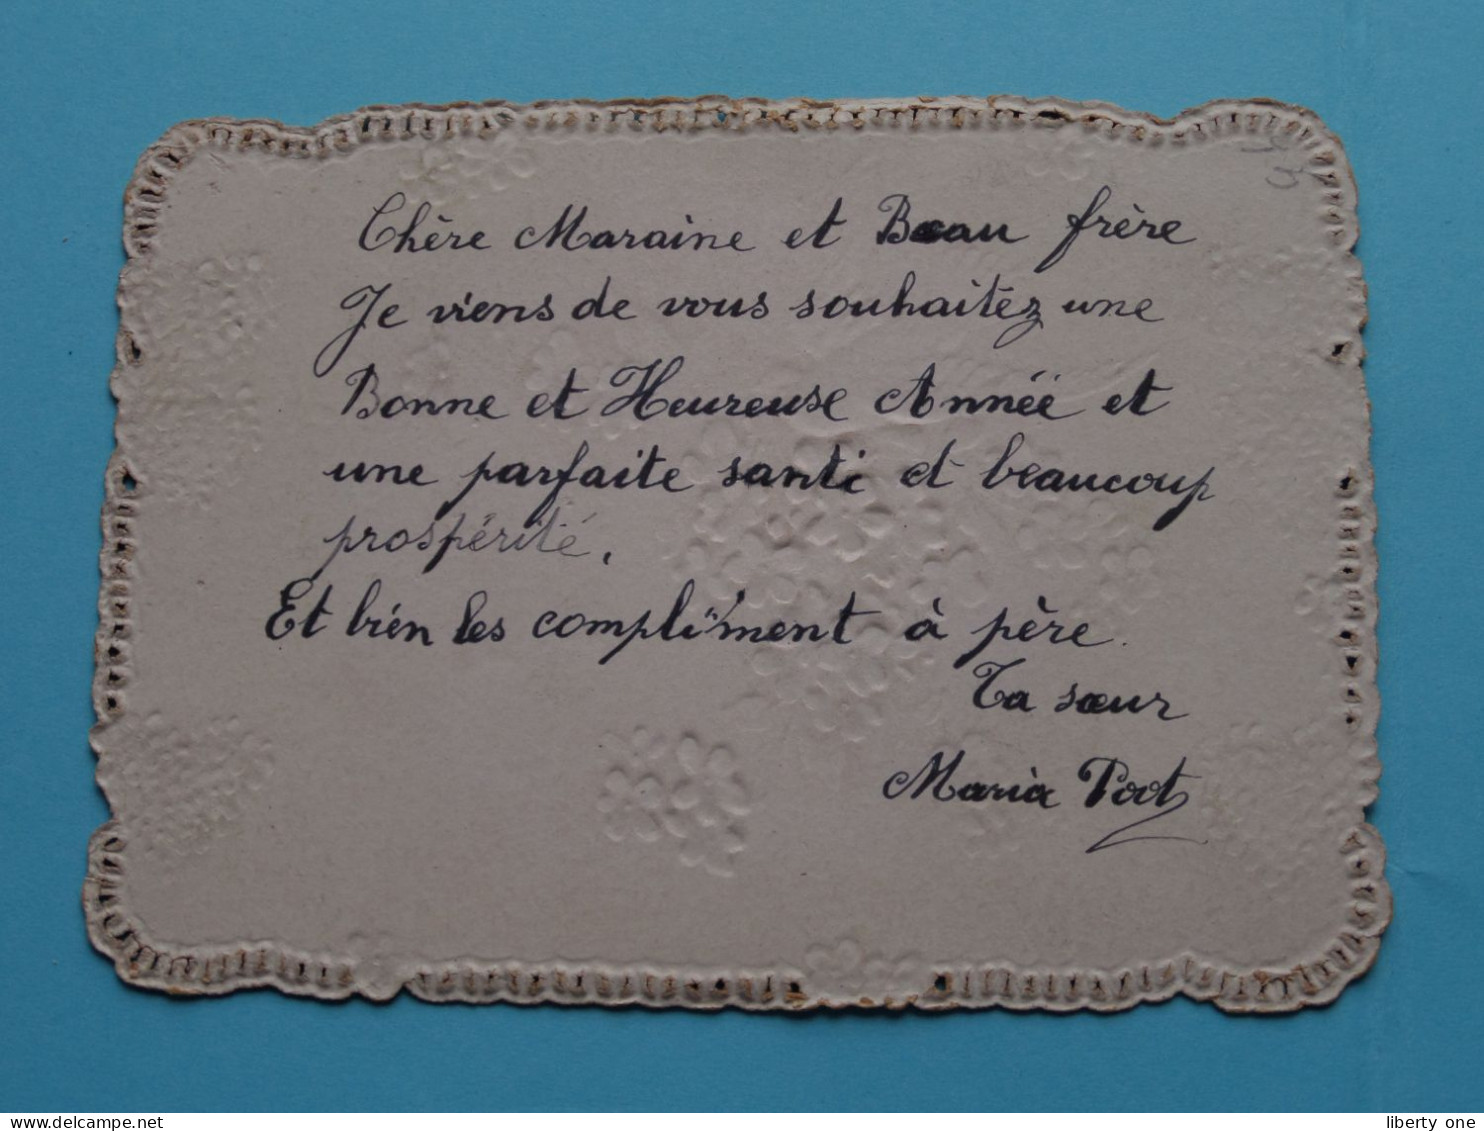 Chère Maraine et Beau frère
Je viens de vous souhaitéz une
Bonne et Heureuse Année et
une parfaite santé et beaucoup
prospérité.
Et bien les compliment à père.
Ta sœur
Maria Poot
liberty one